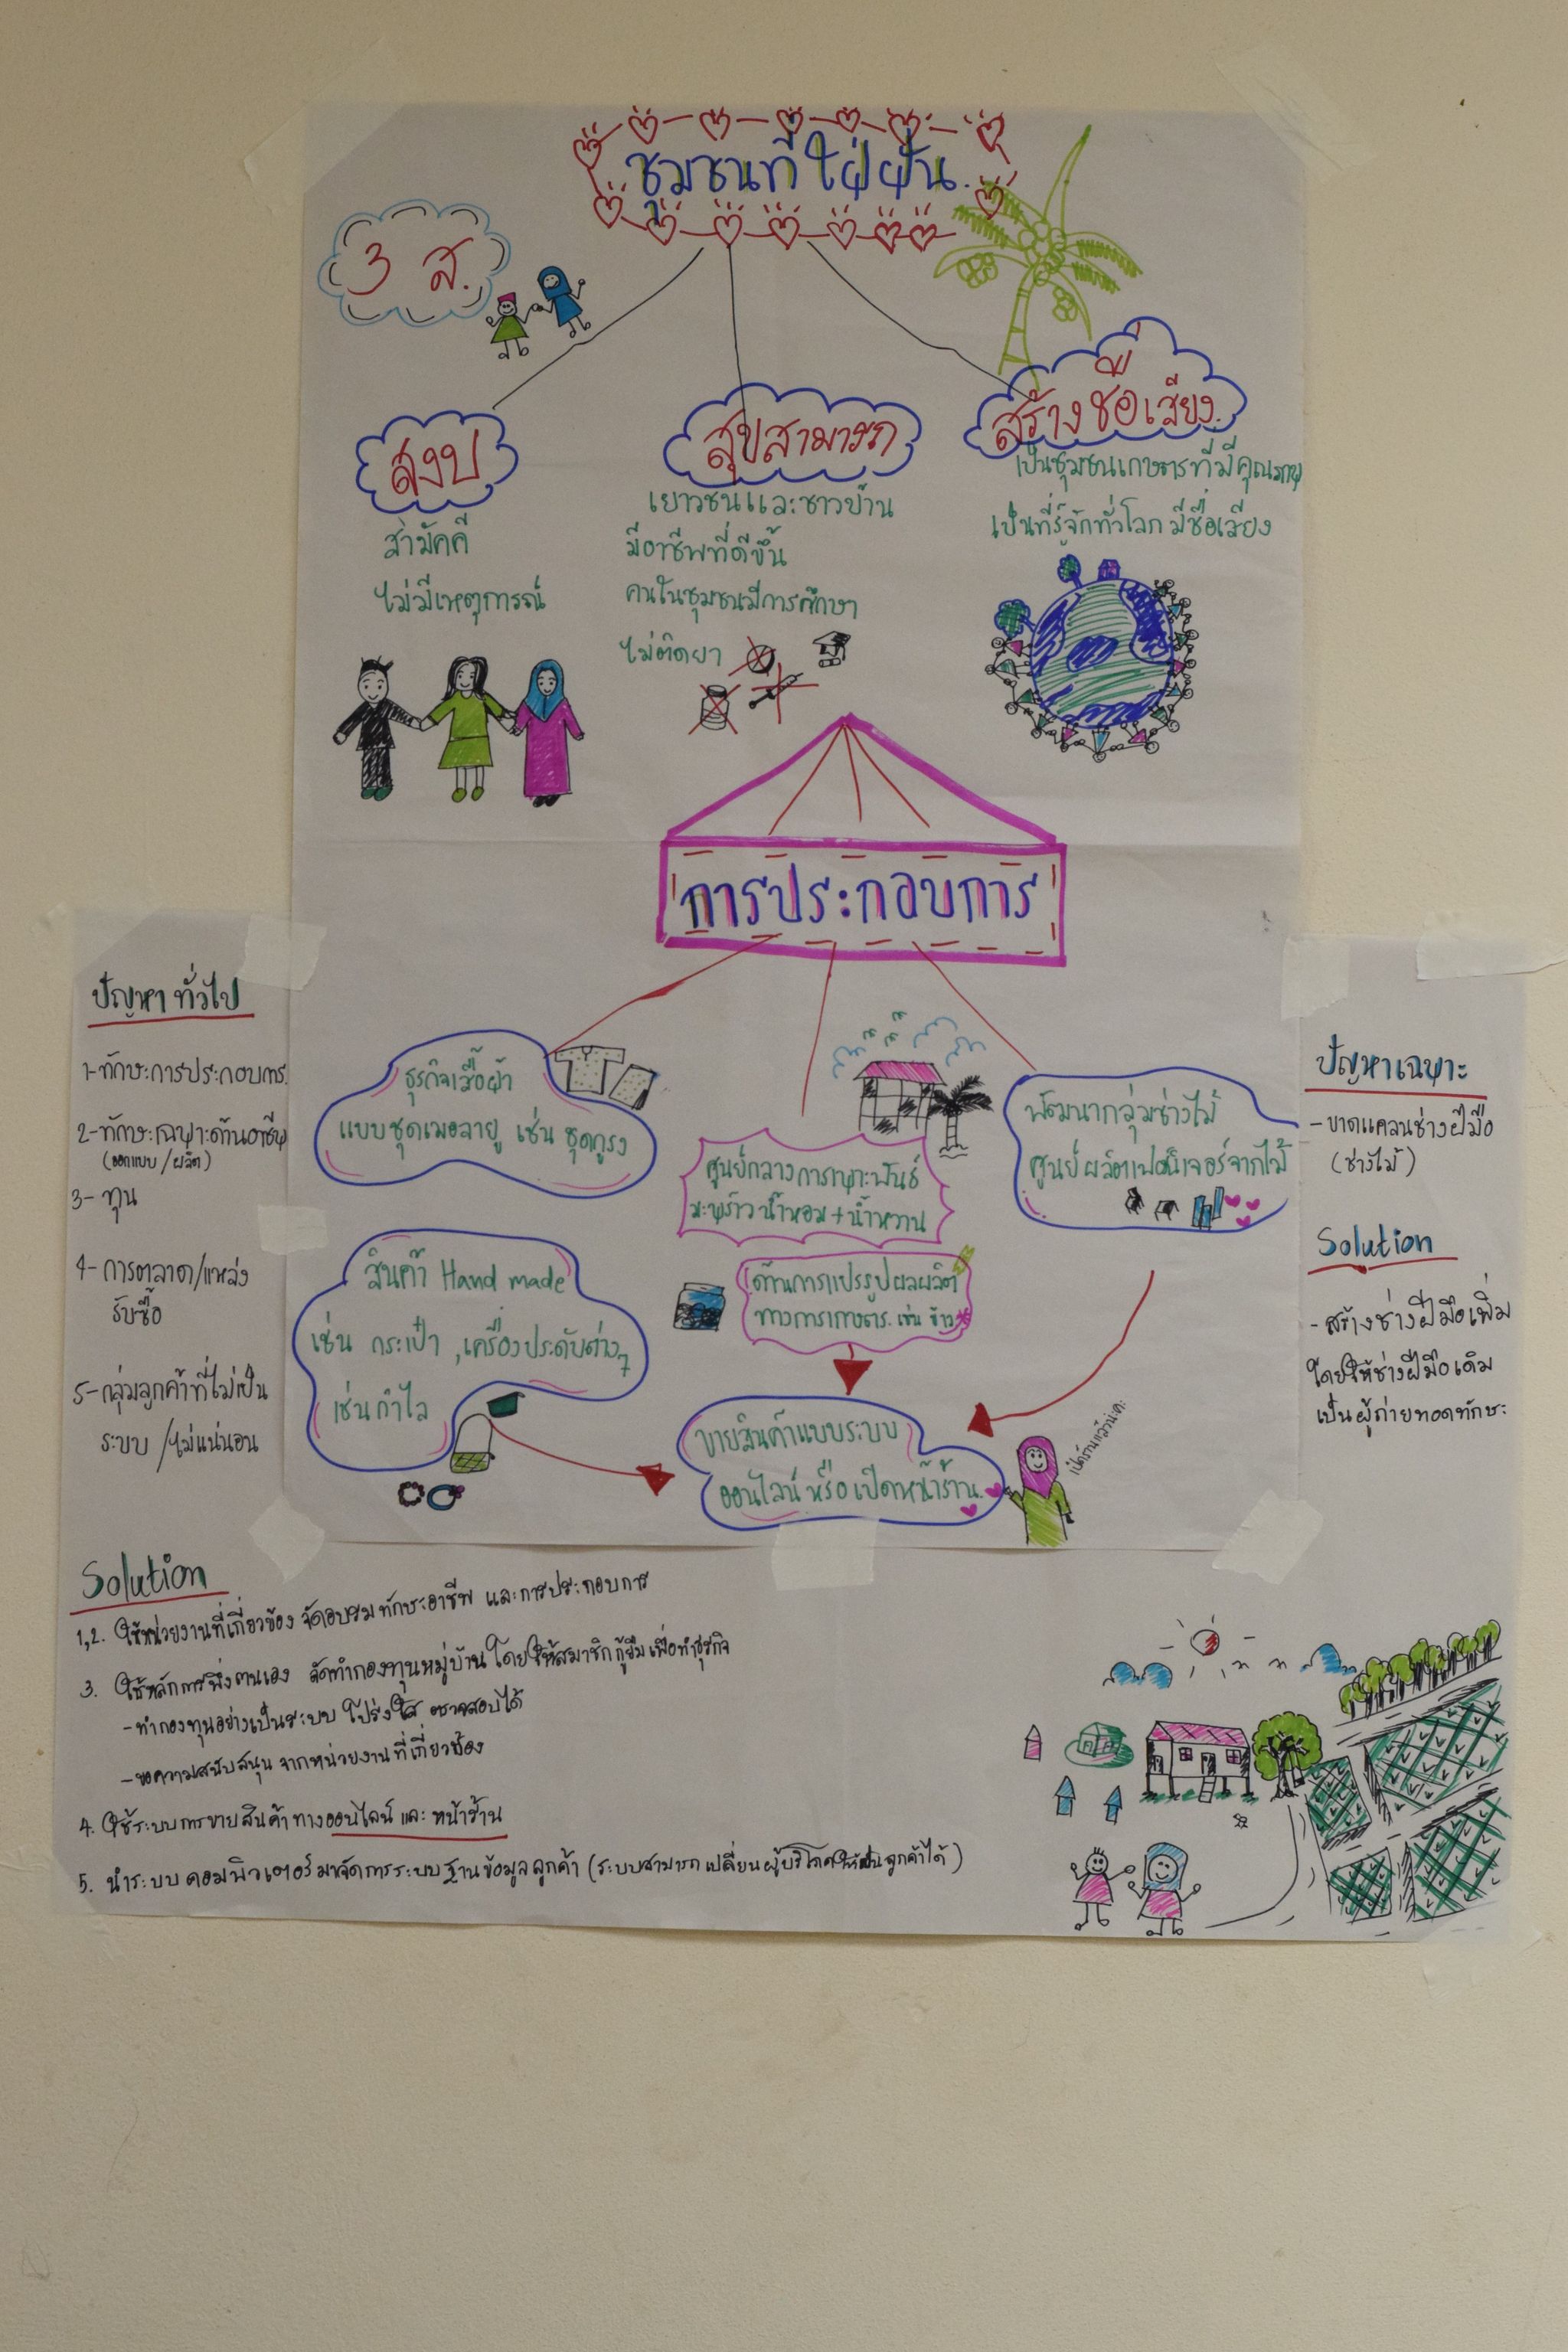 ชุมชนที่ใฝ่ฝัน
3 ส.
สงบ
สามัคคี
ไม่มีเหตุการณ์
สุขสามารถ
เยาวชนและชาวบ้าน
มีอาชีพที่ดีขึ้น
คนในชุมชนมีการศึกษา
ไม่ติดยา
สร้างชื่อเสียง
เป็นชุมชนเกษตรที่มีคุณภาพ
เป็นที่รู้จักทั่วโลก มีชื่อเสียง
การประกอบการ
ธุรกิจเสื้อผ้า
แบบชุดเมอลายู เช่น ชุดกูรง
ศูนย์กลางการเพาะพันธุ์
มะพร้าวน้ำหอม+น้ำหวาน
พัฒนากลุ่มช่างไม้
ศูนย์ผลิตเฟอร์นิเจอร์จากไม้
สินค้า Hand made
เช่น กระเป๋า , เครื่องประดับต่างๆ
เช่นกำไล
ด้านการแปรรูปผลผลิต
ทางการเกษตร เช่น ข้าว
ขายสินค้าแบบระบบ
ออนไลน์ หรือ เปิดหน้าร้าน
เปิดร้านแล้วน่ะคะ
ปัญหาทั่วไป
1-ทักษะการประกอบการ
2-ทักษะเฉพาะด้านอาชีพ
(ออกแบบ/ผลิต)
3- ทุน
4-การตลาด/แหล่ง
รับซื้อ
5-กลุ่มลูกค้าที่ไม่เป็น
ระบบ /ไม่แน่นอน
ปัญหาเฉพาะ
-ขาดแคลนช่างฝีมือ
(ช่างไม้)
Solution
-สร้างช่างฝีมือเพิ่ม
โดยให้ช่างฝีมือเดิม
เป็นผู้ถ่ายทอดทักษะ
Solution
1,2. ให้หน่วยงานที่เกี่ยวข้อง จัดอบรมทักษะอาชีพ และการประกอบการ
3. ใช้หลักการพึ่งตนเอง จัดทำกองทุนหมู่บ้านโดยให้สมาชิกกู้ยืมเพื่อทำธุรกิจ
-ทำกองทุนอย่างเป็นระบบ โปร่งใส ตรวจสอบได้
-ขอความสนับสนุน จากหน่วยงานที่เกี่ยวข้อง
4. ใช้ระบบการขายสินค้าทางออนไลน์ และ หน้าร้าน
5. นำระบบคอมพิวเตอร์มาจัดการระบบฐานข้อมูลลูกค้า (ระบบสามารถเปลี่ยนผู้บริโภคให้เป็นลูกค้าได้)